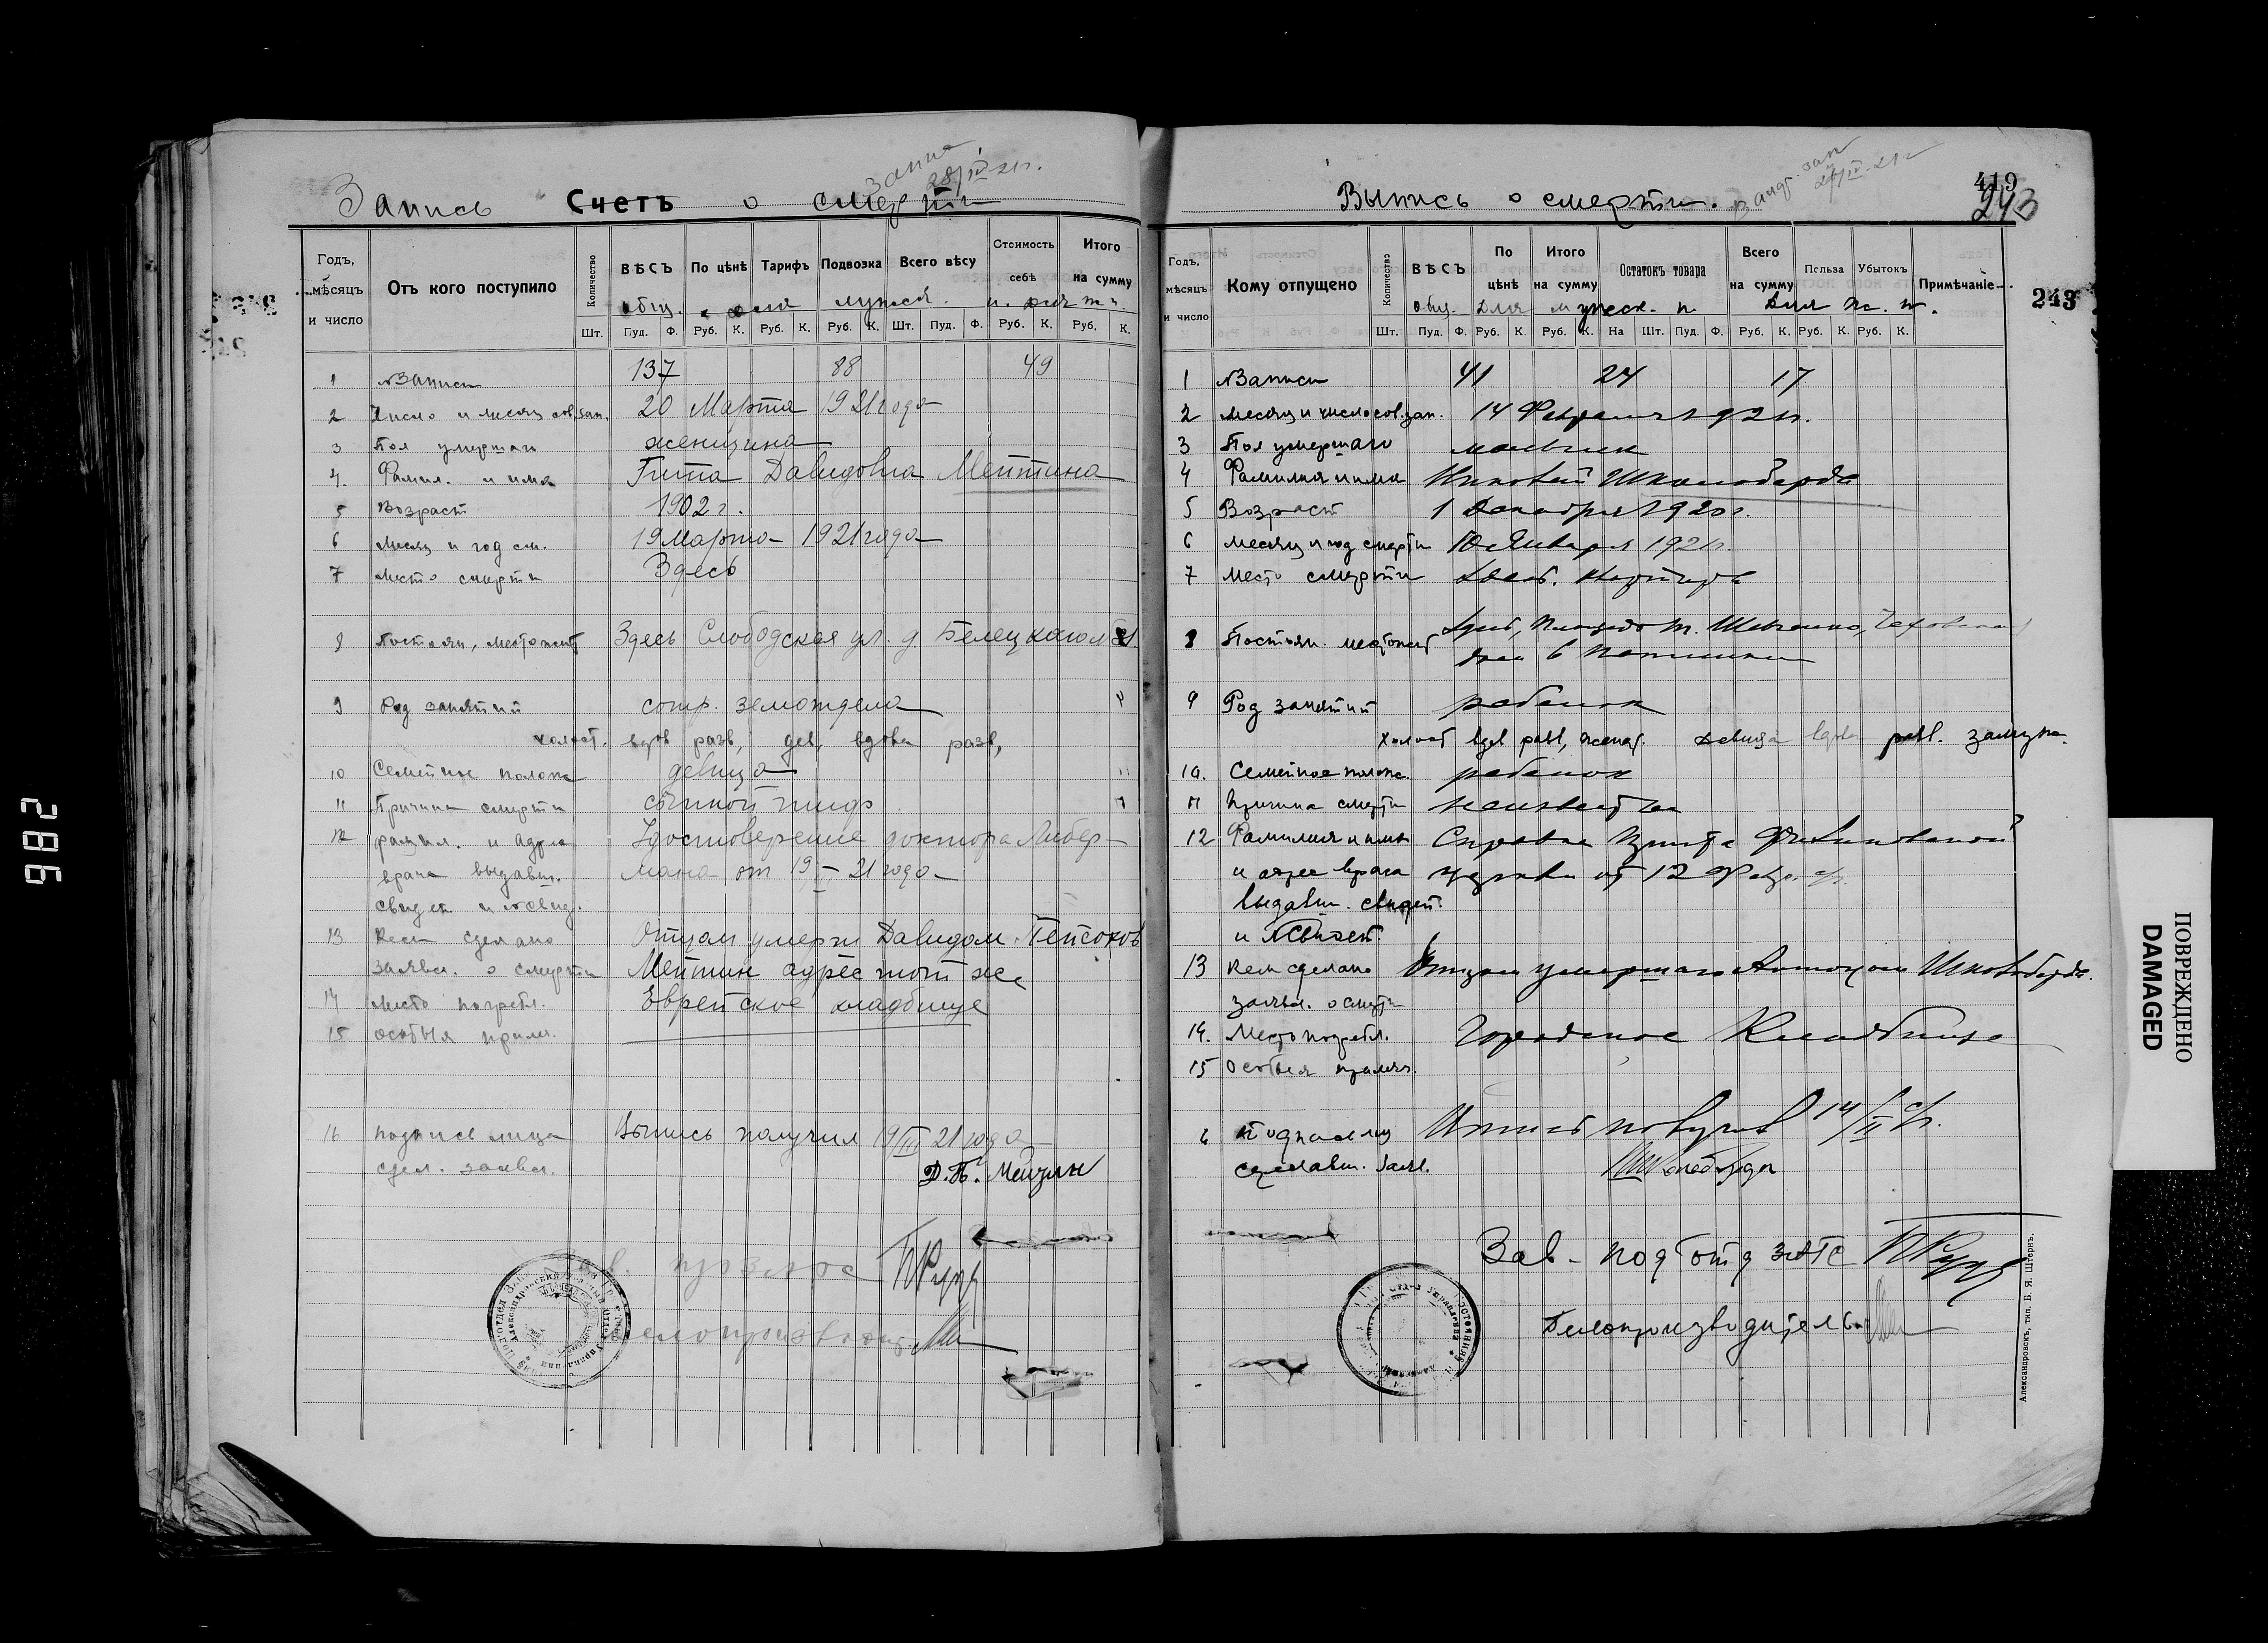 Запись Счетъ о смерти
28/IV 21г.
Годъ, мѣсяцъ и число
Отъ кого поступило
Количество
ВѢСЪ
По цѣнѣ
Тарифъ
Подвозка
Всего вѣсу
Стоимость себѣ
Итого на сумму
общ. для мужск. и для ж.
Шт. Пуд. Ф. Руб. К. Руб. К. Руб. К. Шт. Пуд. Ф. Руб. К. Руб. К.
1 № Записи 137 88 49
2 Число и месяц сов. зап. 20 Марта 1921 года
3 Пол умерш. женщина
4. Фамил. и имя Гита Давидовна Мейтина
5 Возраст 1902 г.
6 Месяц и год см. 19 Марта 1921 года
7 Место смерти Здесь
8 Постоян. местожит Здесь Слободская ул. д. Белецкаго
9 Род занятий сотр. земотдела
холост. вдов разв, дев, вдова разв,
10 Семейное полож девица
11 Причина смерти сыпной тиф
12 фамил. и адрес Удостоверение доктора Либер-
врача выдавш. мана от 19 21 года
свидет и № свид.
13 Кем сделано Отцом умерш Давидом
заявл. о смерти Мейтин адрес тот же
14 Место погребл. Еврейское кладбище
15 особыя прим.
16 подпись лица Выпись получил 19/III 21 года
сдел. заявл. Д.Б. Мейтин
Делопроизводит
Выпись о смерти.
419
243
243
Годъ, мѣсяцъ и число
Кому отпущено
Количество
ВѢСЪ
По цѣнѣ
Итого на сумму
Остатокъ товара
Всего на сумму
Польза
Убытокъ
Примѣчаніе
общ. для мужск. п. для ж. п.
Шт. Пуд. Ф. Руб. К. Руб. К. На Шт. Пуд. Ф. Руб. К. Руб. К. Руб. К.
1 № Записи 41 24 17
2 Месяц и число сов. зап. 14 Февраля 1921г.
3 Пол умершаго мальчик
4 Фамилия и имя Школобарда
5 Возраст 1 Декабря 1920г.
6 Месяц и год смерти 10 Января 1921г.
7 Место смерти Здесь. Квартира
8 Постоян. местожит Здесь,
дом 6
9 Род занятий ребенок
холост вдов разв, женат. девица вдова разв. замужн.
10. Семейное полож. ребенок
11 Причина смерти неизвестна
12 Фамилия и имя Справка
и адрес врача от 12 Февр. с/г.
выдавш. свидет.
и № Свидет.
13 Кем сделано Отцом умершаго Антоном Школобарда.
заявл. о смерти
14. Место погребл. Городское Кладбище
15 Особыя примеч.
Подпись лиц Выпись получил 14/II с/г.
сделавш. заявл. Школобарда
Зав. подотд ЗАГС
Делопроизводитель
Александровскъ, тип. Б. Я. Штернъ.
ПОВРЕЖДЕНО
DAMAGED
982